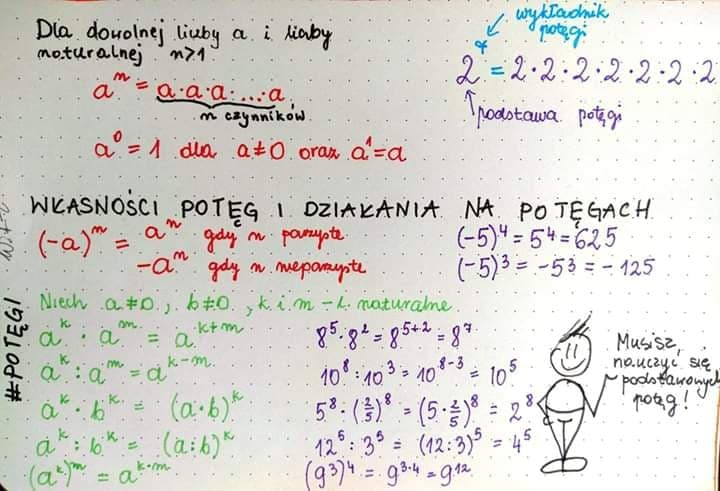 Dla dowolnej liczby a i liczby
naturalnej n>1
aⁿ = a·a·a·...·a
n czynników
a⁰ = 1 dla a≠0 oraz a¹=a
wykładnik
potęgi
2⁷ = 2·2·2·2·2·2·2
podstawa potęgi
WŁASNOŚCI POTĘG I DZIAŁANIA NA POTĘGACH
(-a)ⁿ = aⁿ gdy n parzyste
-aⁿ gdy n nieparzyste
(-5)⁴ = 5⁴ = 625
(-5)³ = -5³ = -125
#POTĘGI
Niech a≠0, b≠0, k i m - l. naturalne
aᵏ · aᵐ = aᵏ⁺ᵐ
8⁵·8² = 8⁵⁺² = 8⁷
aᵏ : aᵐ = aᵏ⁻ᵐ
10⁸ : 10³ = 10⁸⁻³ = 10⁵
aᵏ · bᵏ = (a·b)ᵏ
5⁸·(2/5)⁸ = (5·2/5)⁸ = 2⁸
aᵏ : bᵏ = (a:b)ᵏ
12⁵ : 3⁵ = (12:3)⁵ = 4⁵
(aᵏ)ᵐ = aᵏ·ᵐ
(9³)⁴ = 9³·⁴ = 9¹²
Musisz
nauczyć się
podstawowych
potęg!